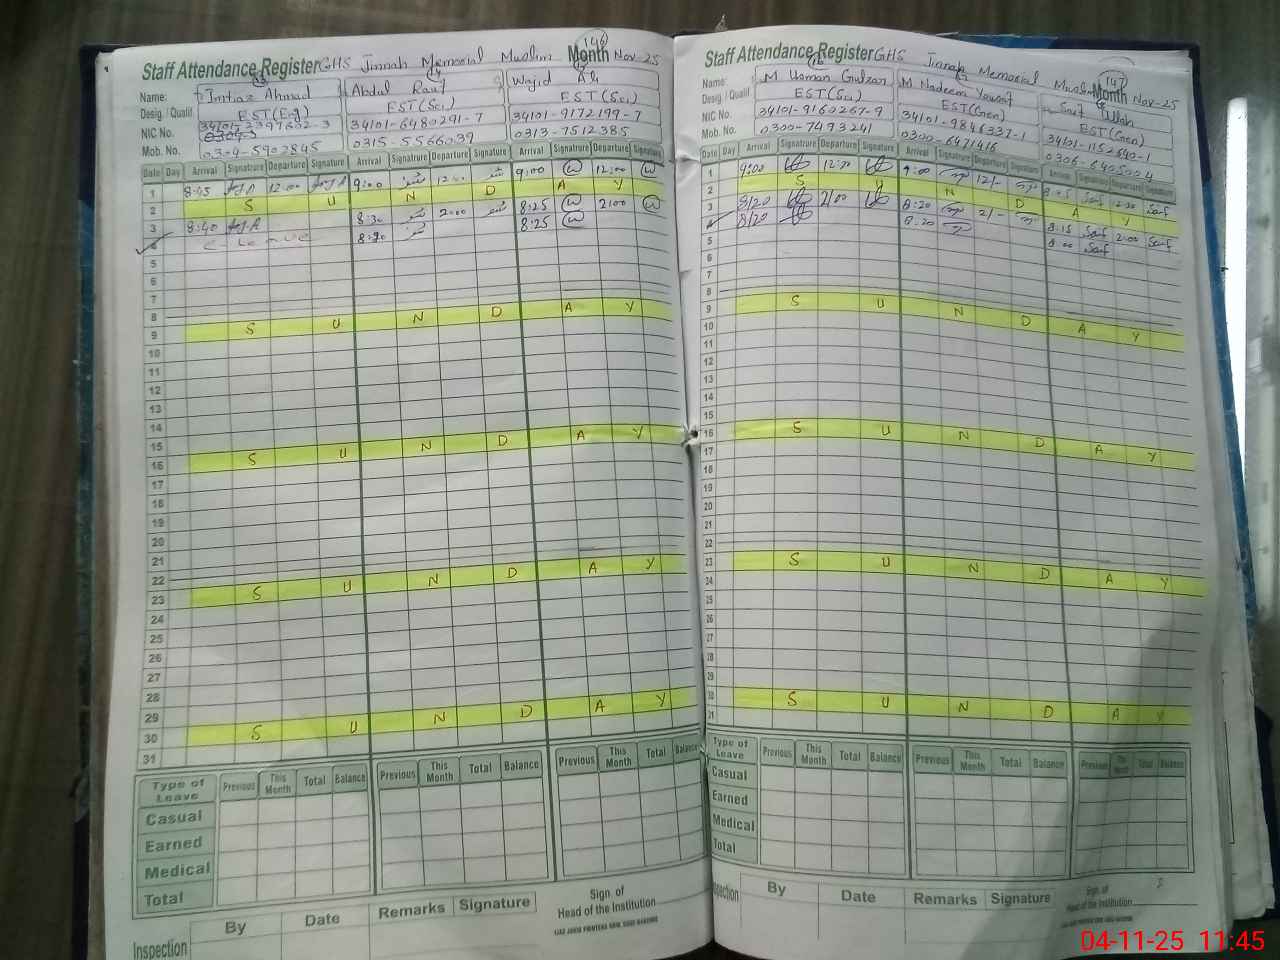 146
Staff Attendance Register GHS Jinnah Memorial Muslim Month Nov-25
Name: Imtiaz Ahmad Abdul Rauf Wajid Ali
Desig / Qualif. EST(Eng) EST(Sci) EST(Sci)
NIC No. 34101-6480291-7 34101-9172199-7
Mob. No. 0304-5902845 0315-5566039 0313-7512385
Date Day Arrival Signature Departure Signature Arrival Signature Departure Signature Arrival Signature Departure Signature
1 8:45 12:00 9:00 12:00 9:00 12:00
2 S U N D A Y
3 8:40 8:30 2:00 8:25 2:00
4 C-Leave 8:20 8:25
5
6
7
8
9 S U N D A Y
10
11
12
13
14
15
16 S U N D A Y
17
18
19
20
21
22
23 S U N D A Y
24
25
26
27
28
29
30 S U N D A Y
31
Type of Leave Previous This Month Total Balance Previous This Month Total Balance Previous This Month Total Balance
Casual
Earned
Medical
Total
Inspection By Date Remarks Signature Sign. of Head of the Institution
147
Staff Attendance Register GHS Jinnah Memorial Muslim Month Nov-25
Name: M Usman Gulzar M Nadeem Yousaf Saif Ullah
Desig / Qualif. EST(Sci) EST(Gen) EST(Gen)
NIC No. 34101-9160267-9 34101-9846337-1 34101-1152640-1
Mob. No. 0300-7493241 0300-6471416 0306-6405004
Date Day Arrival Signature Departure Signature Arrival Signature Departure Signature Arrival Signature Departure Signature
1 9:00 12:00 9:00 12/- 8:45 12:00
2 S U N D A Y
3 8/20 2/00 8:20 2/- 8:15 2:00
4 8/20 8:20 8:00
5
6
7
8
9 S U N D A Y
10
11
12
13
14
15
16 S U N D A Y
17
18
19
20
21
22
23 S U N D A Y
24
25
26
27
28
30 S U N D A Y
31
Type of Leave Previous This Month Total Balance Previous This Month Total Balance Previous This Month Total Balance
Casual
Earned
Medical
Total
Inspection By Date Remarks Signature Sign. of Head of the Institution
04-11-25 11:45